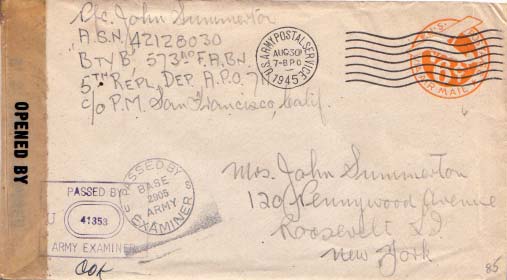 Pfc. John Summerton
A.S.N. 42128030
B'TN B', 573RD F.A.BN.
5TH REPL. DEP. A.P.O. 71
C/O P.M. San Francisco, Calif.
U.S. ARMY POSTAL SERVICE
AUG 30
7-8 PD
1945
AIR MAIL
OPENED BY
PASSED BY
BASE
2905
ARMY
EXAMINER
PASSED BY
U
41353
ARMY EXAMINER
Mrs. John Summerton
120 Pennywood Avenue
Roosevelt L.I.
New York
85